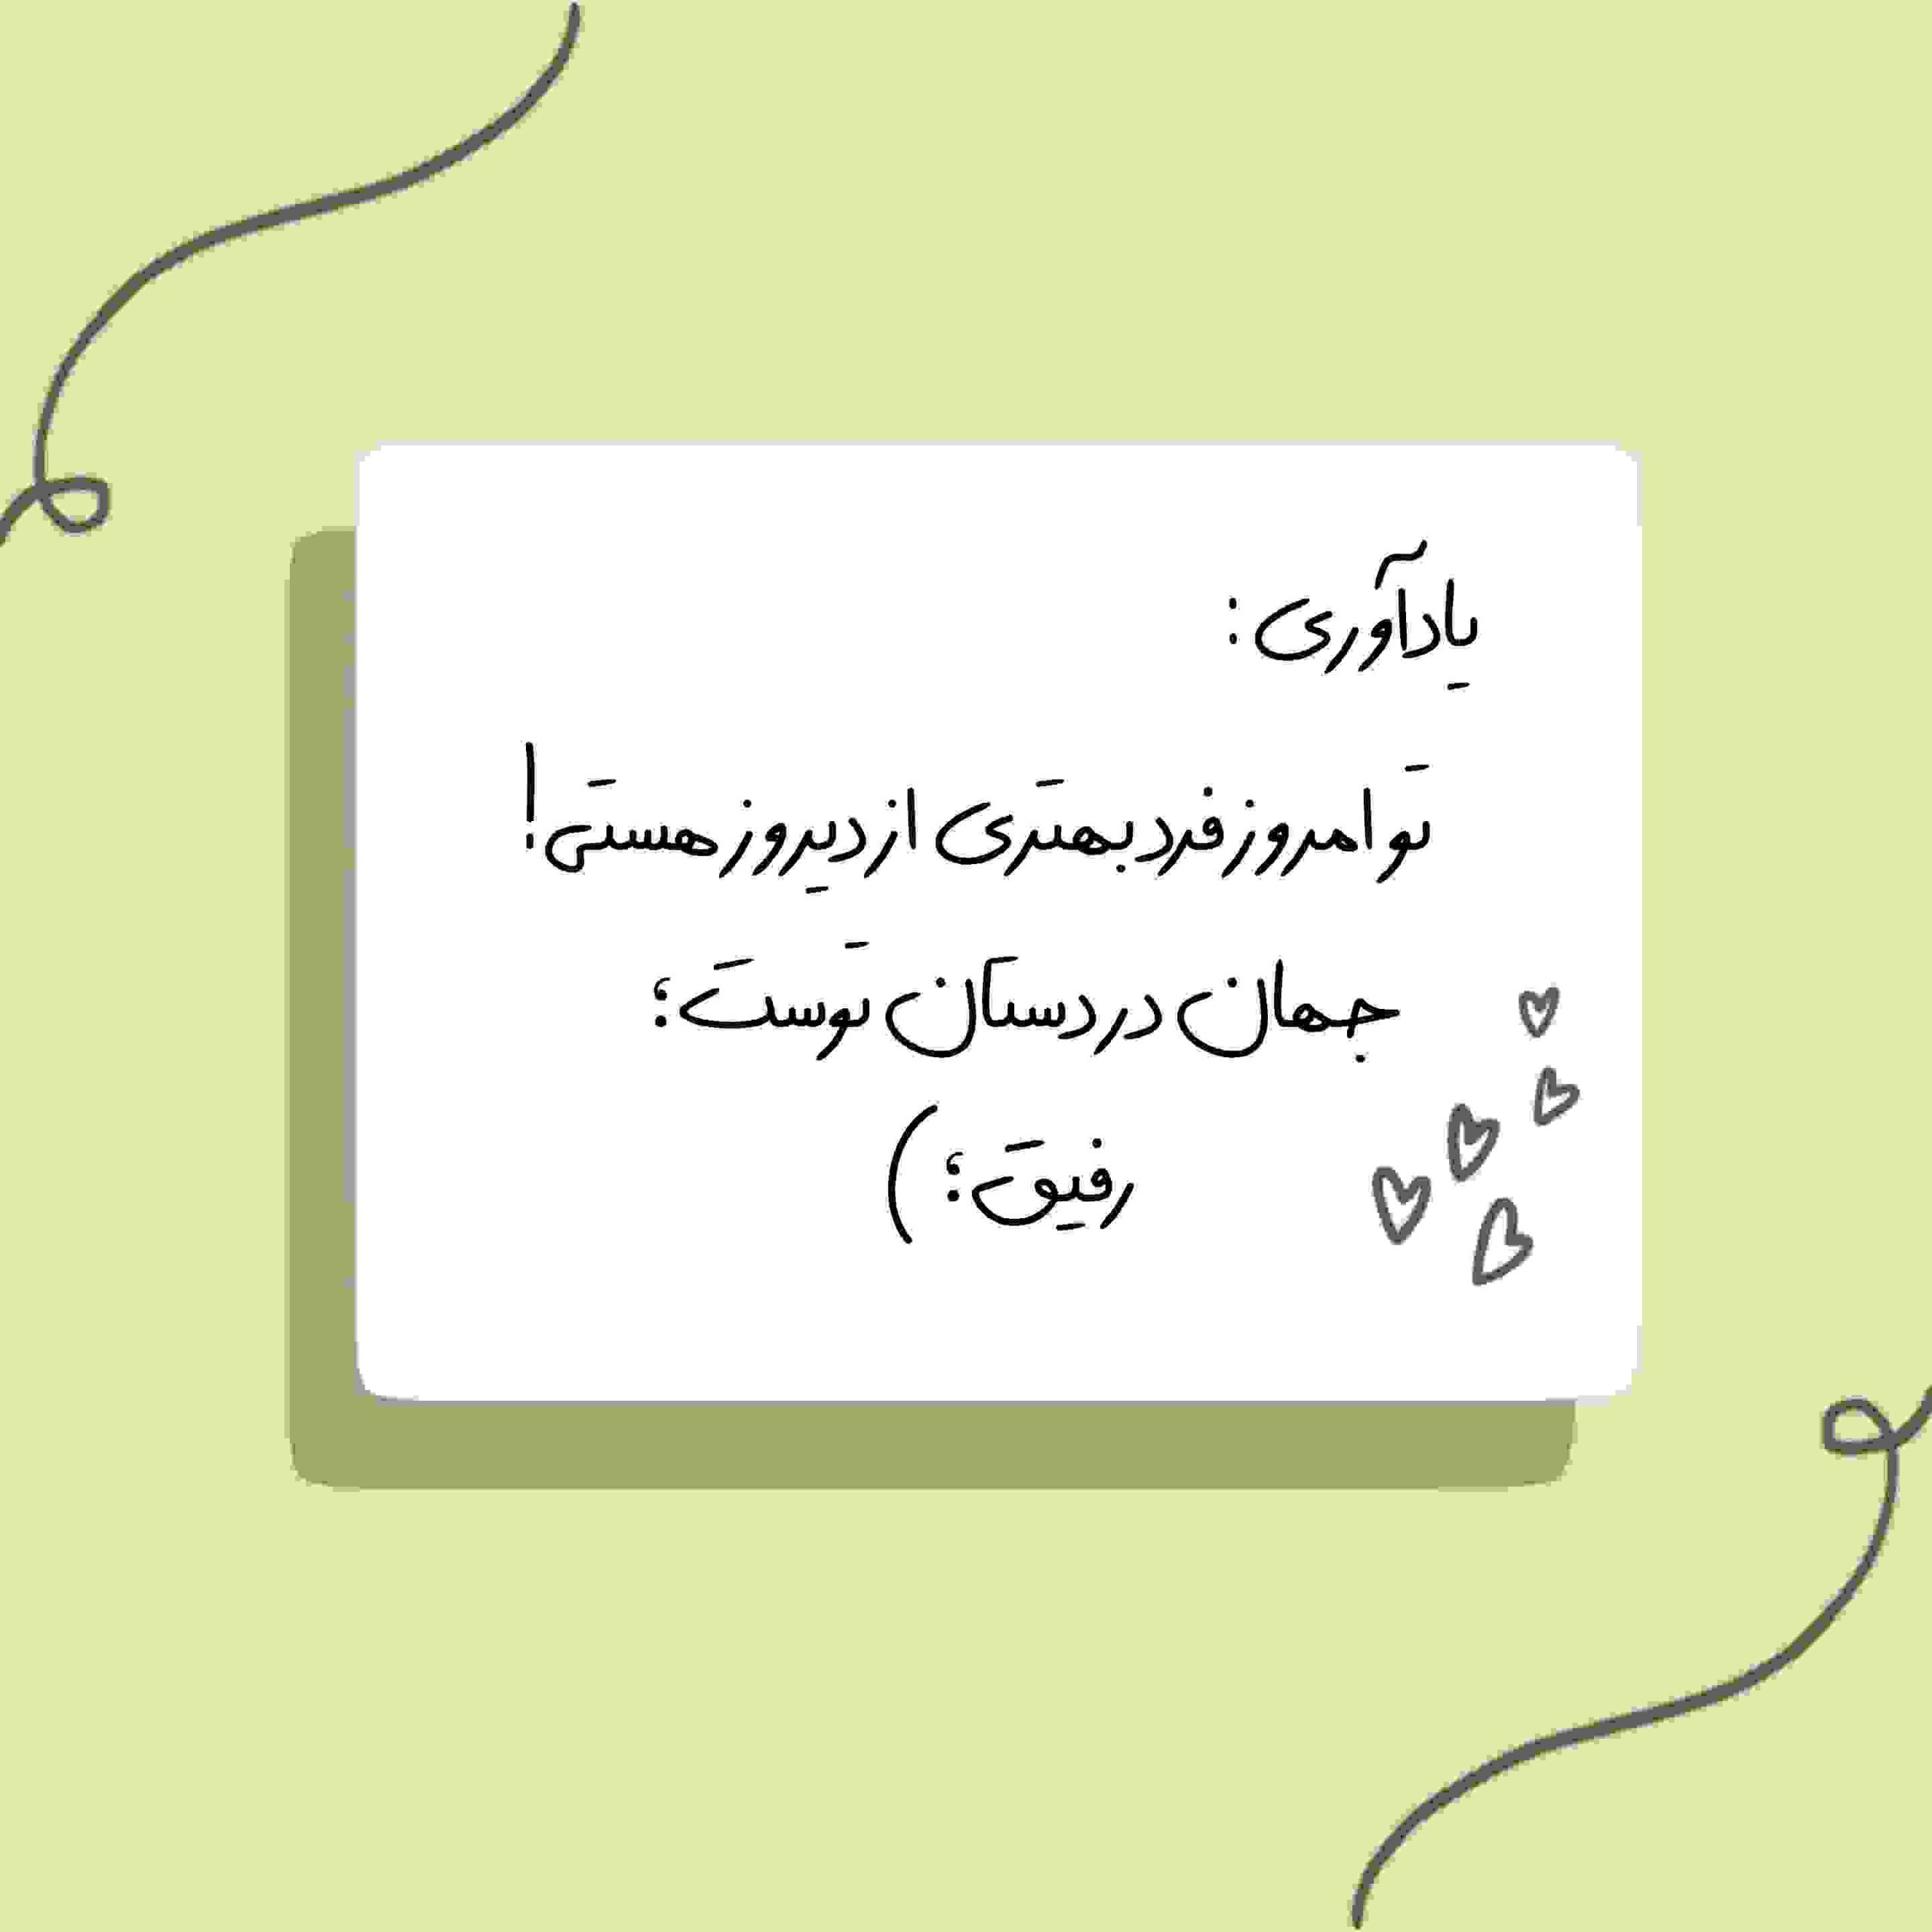 یادآوری:
تو امروز فرد بهتری از دیروز هستی!
جهان در دستان توست؛
رفیق؛)